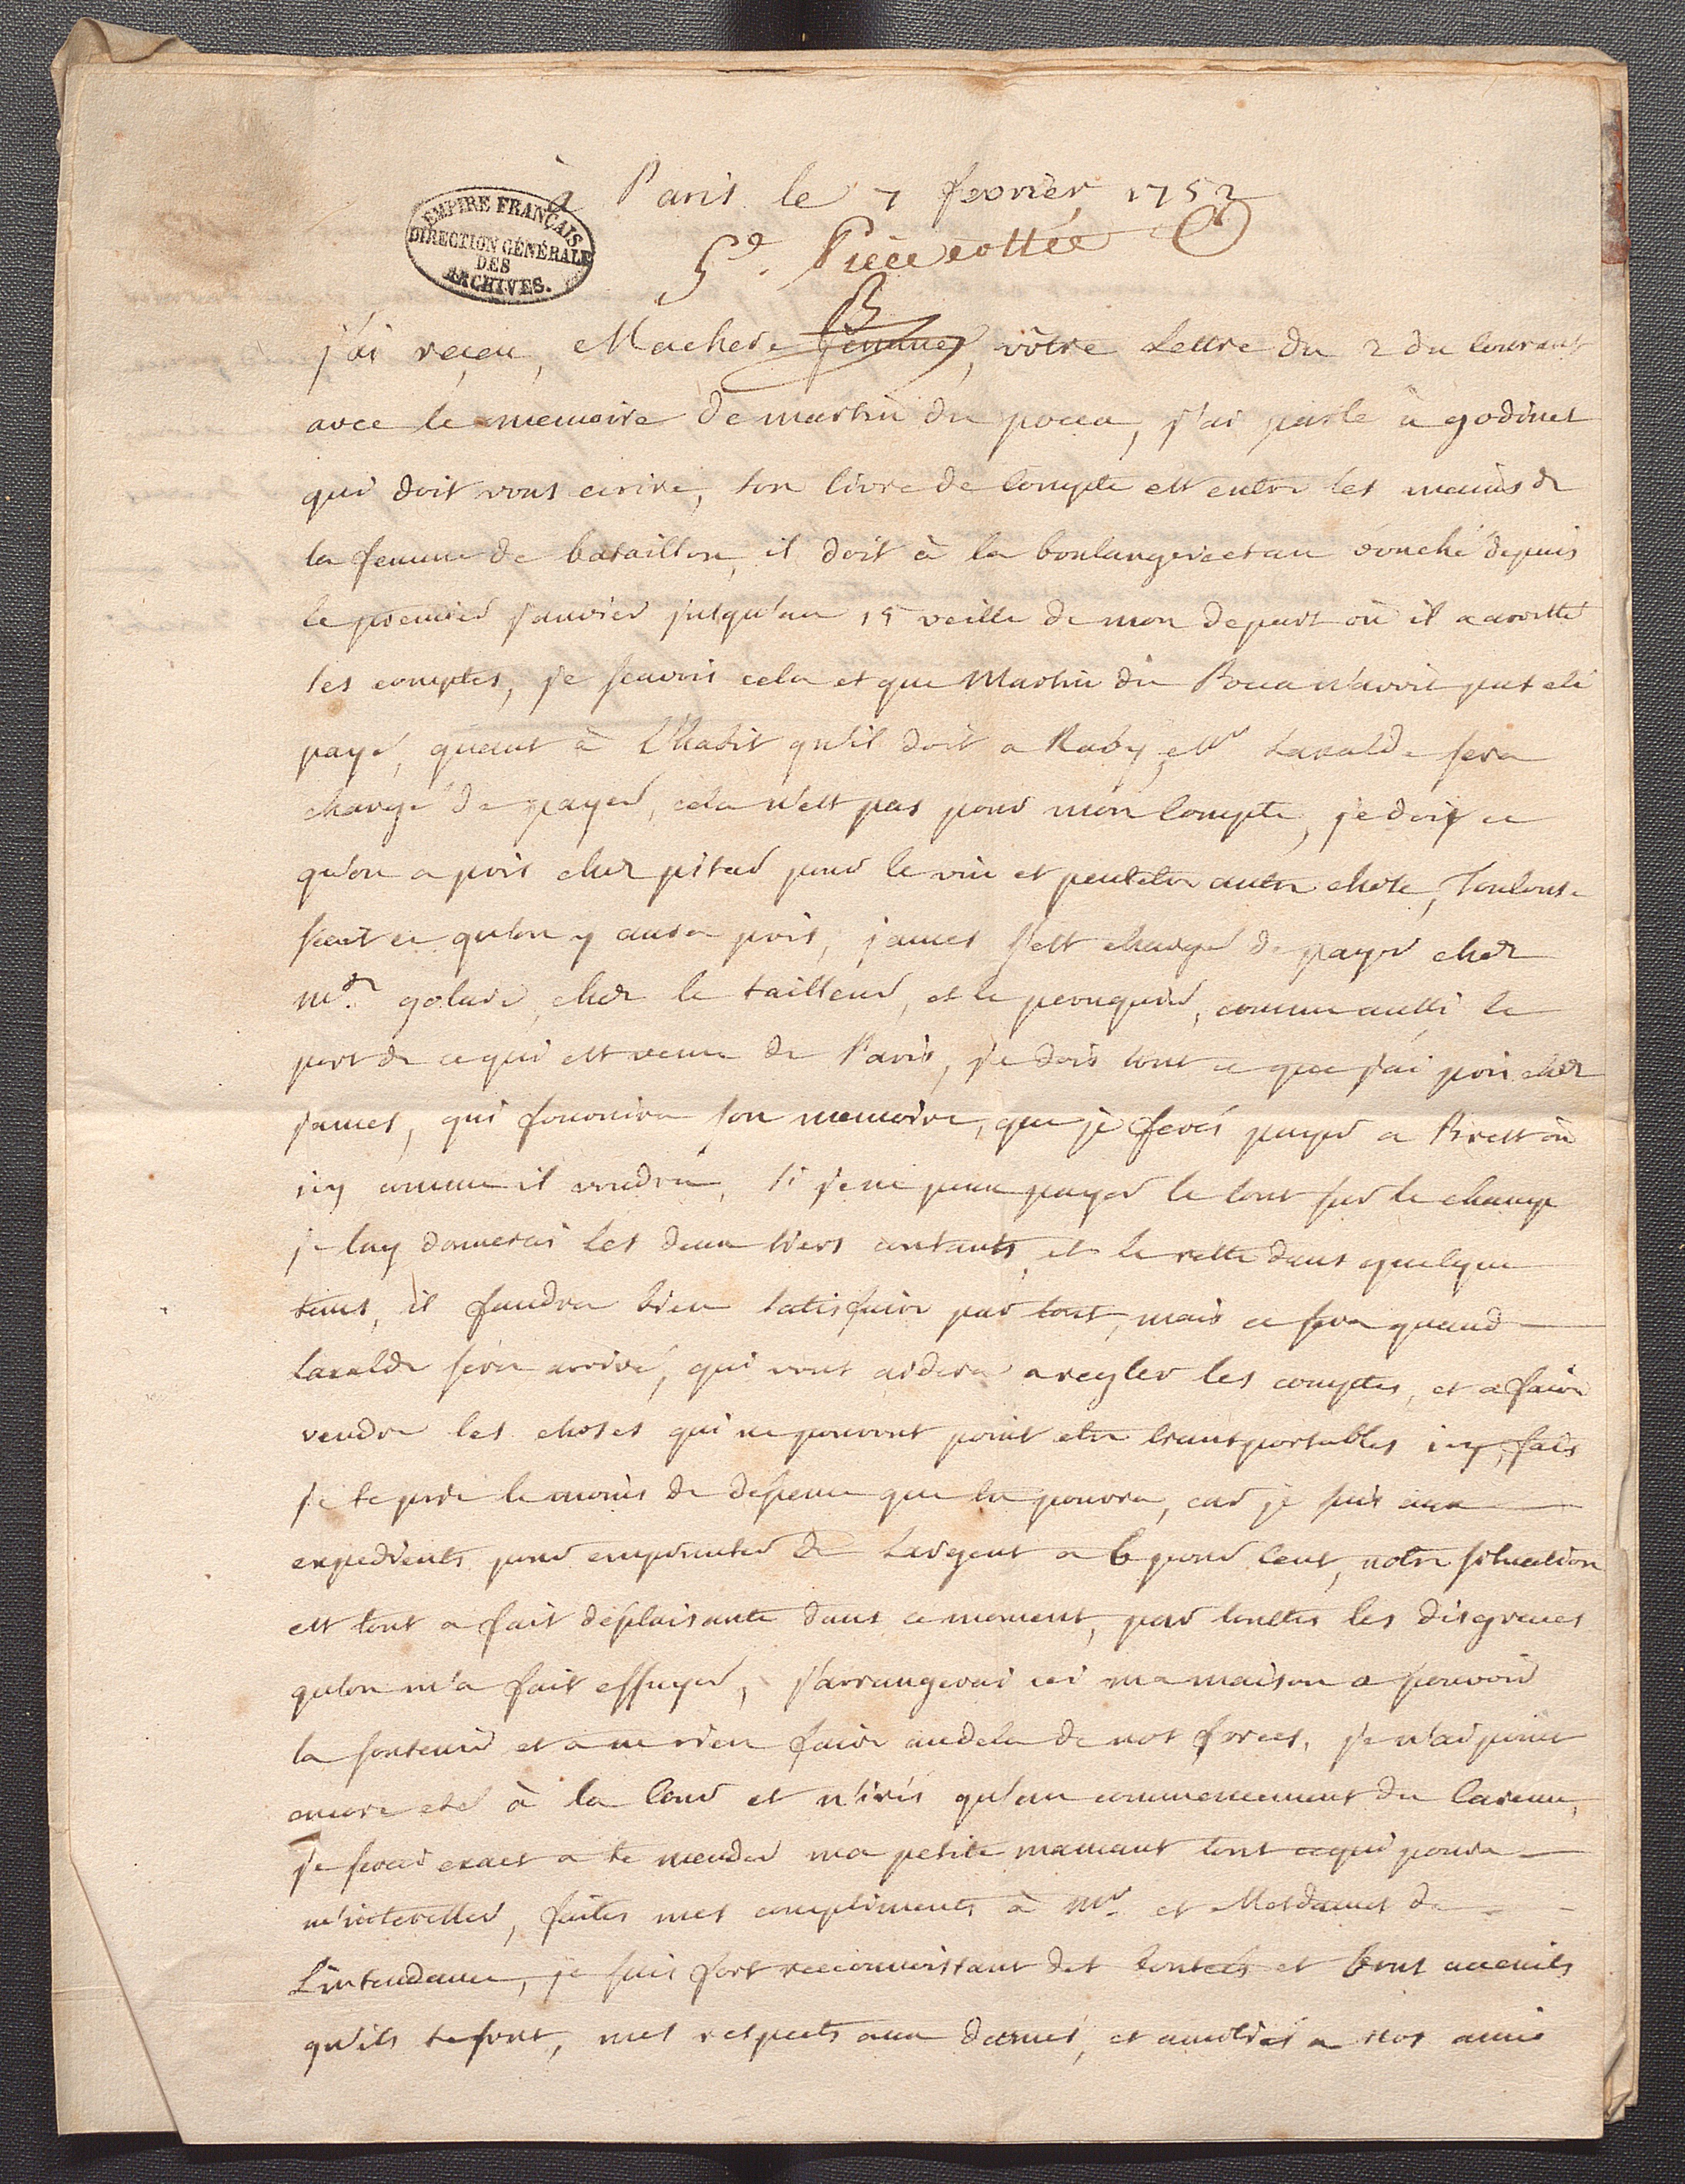 à Paris le 7 fevrier 1752
EMPIRE FRANÇAIS
DIRECTION GÉNÉRALE
DES
ARCHIVES.
5e. Piece cottée
B
j'ai reçeu, Machere femme, vôtre Lettre du 2 du Courant
avec le memoire de martin du pocca, j'ai parlé à godinet
qui doit vous ecrire, son livre de Compte est entre les mains de
la femme de bataillon, il doit à la boulangere et au bouché depuis
le premier janvier jusqu'au 15 veille de mon depart où il a arretté
ses comptes, je scavois cela et que Martin du Pocca n'avoit pas eté
payé, quant à L'habit qu'il doit a Raby, Mr Laralde sera
chargé de payer, cela n'est pas pour mon Compte, je dois ce
qu'on a pris chez pitad pour le vin et peutetre autre chose, Toulouse
scait ce qu'on y aura pris, james s'est chargé de payer chez
mde goluie chez le tailleur, et le peruquier, comme aussi le
port de ce qui est venu de Paris, je dois tout ce que j'ai pris chez
james, qui fournira son memoire, que je ferés payer a Brest où
icy comme il voudra, si je ne peux payer le tout sur le champ
je luy donnerai les deux tiers contants et le reste dans quelque
tems, il faudra bien satisfaire par tout, mais ce sera quand
Laralde sera arrivé, qui vous aidera a regler les comptes, et a faire
vendre les choses qui ne pouront point etre transportables icy, fais
je te prie le moins de depense que tu poura, car je suis aux
expedients pour emprunter de Largent a 6 pour Cent, notre situation
est tout a fait déplaisante dans ce moment, par touttes les disgraces
qu'on m'a fait essuyer, j'arrangerai ici ma maison a pouvoir
la soutenir et a ne rien faire au dela de nos forces, je n'ai point
encore eté à la Cour et n'irés qu'au commencement du Careme,
je serai exact a te mander ma petite mamant tout ce qui poura
m'interesser, faites mes compliments à Mr. et Mesdames de
L'intendance, je suis fort reconnoissant des bontés et bons acceuils
qu'ils te font, mes respects aux dames, et amitiés a nos amis